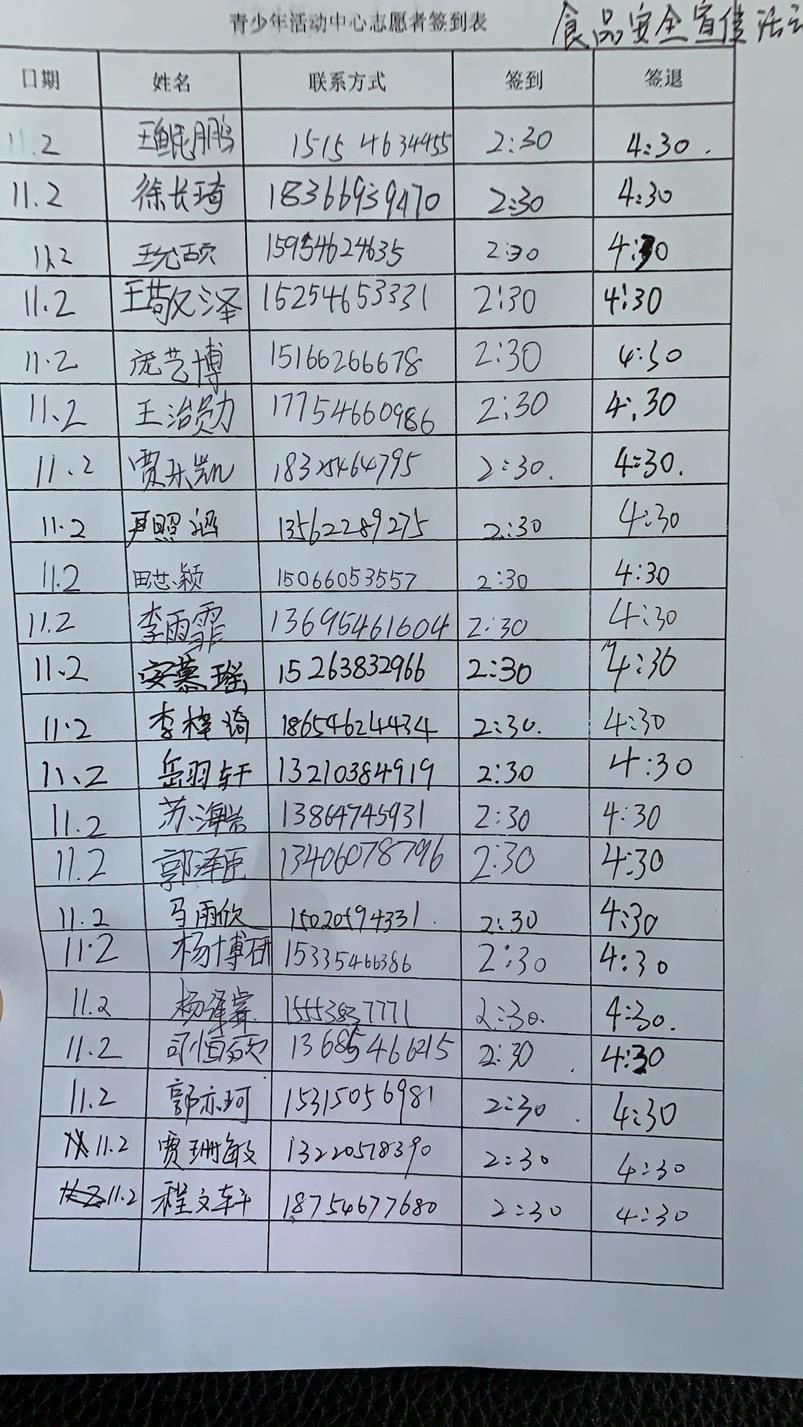 青少年活动中心志愿者签到表 食品安全宣传活动
日期 姓名 联系方式 签到 签退
11.2 王鲲鹏 15154634455 2:30 4:30.
11.2 徐长琦 18366939470 2:30 4:30
11.2 15954624635 2:30 4:30
11.2 王敬泽 15254653331 2:30 4:30
11.2 庞艺博 15166266678 2:30 4:30
11.2 王治勋 17754660986 2:30 4:30
11.2 贾乐凯 2:30. 4:30.
11.2 尹照涵 13562289275 2:30 4:30
11.2 田芯颖 15066053557 2:30 4:30
11.2 李雨霏 13695461604 2:30 4:30
11.2 安慕瑶 15263832966 2:30 4:30
11.2 李梓琦 18654624434 2:30. 4:30
11.2 岳羽轩 13210384919 2:30 4:30
11.2 苏海 13864745931 2:30 4:30
11.2 郭泽臣 13406078796 2:30 4:30
11.2 马雨欣 15020594331. 2:30 4:30
11.2 杨博研 15335466386 2:30 4:30
11.2 杨 15553837771 2:30. 4:30.
11.2 司恒硕 13685466215 2:30 4:30
11.2 郭亦珂 15315056981 2:30 4:30
11.2 贾珊敏 13220578390 2:30 4:30
11.2 程文轩 18754677680 2:30 4:30